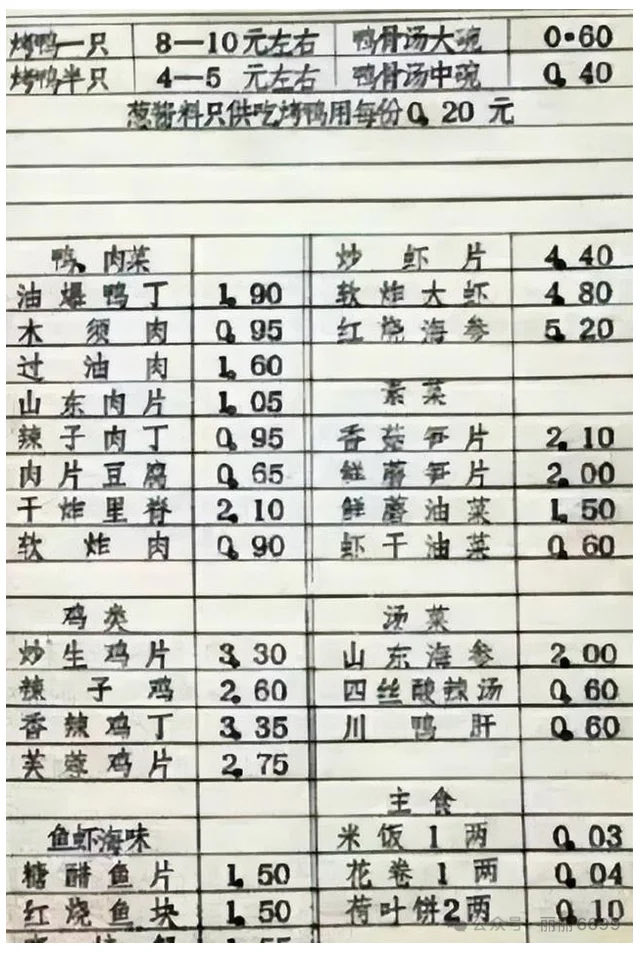 烤鸭一只 8—10元左右 鸭骨汤大碗 0.60
烤鸭半只 4—5 元左右 鸭骨汤中碗 0.40
葱酱料只供吃烤鸭用每份0.20 元
鸭、肉菜
油爆鸭丁 1.90
木须肉 0.95
过油肉 1.60
山东肉片 1.05
辣子肉丁 0.95
肉片豆腐 0.65
干炸里脊 2.10
软炸肉 0.90
鸡类
炒生鸡片 3.30
辣子鸡 2.60
香辣鸡丁 3.35
芙蓉鸡片 2.75
鱼虾海味
糖醋鱼片 1.50
红烧鱼块 1.50
炒虾片 4.40
软炸大虾 4.80
红烧海参 5.20
素菜
香菇笋片 2.10
鲜蘑笋片 2.00
鲜蘑油菜 1.50
虾干油菜 0.60
汤菜
山东海参 2.00
四丝酸辣汤 0.60
川鸭肝 0.60
主食
米饭1两 0.03
花卷1两 0.04
荷叶饼2两 0.10
公众号·丽丽6699